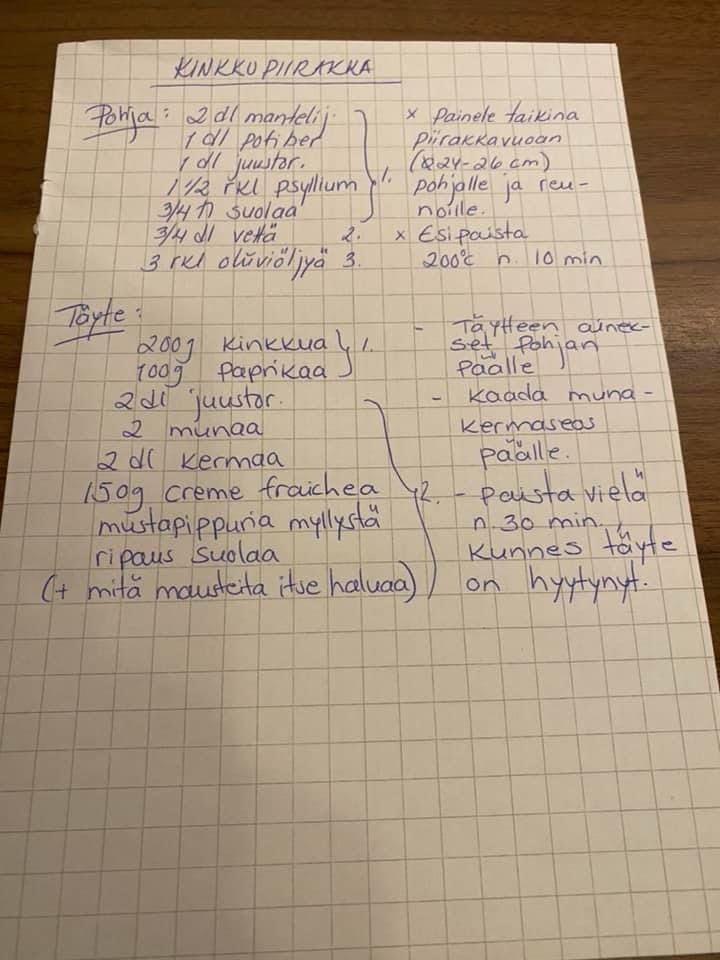 KINKKUPIIRAKKA
Pohja: 2 dl mantelij.
1 dl potiber
1 dl juustor.
1 1/2 rkl psyllium
3/4 tl suolaa
1.
3/4 dl vettä 2.
3 rkl oliiviöljyä 3.
x Painele taikina
piirakkavuoan
(Ø 24-26 cm)
pohjalle ja reu-
noille.
x Esipaista
200°C n. 10 min
Täyte:
200g kinkkua
100g paprikaa
1.
2 dl juustor.
2 munaa
2 dl kermaa
150g creme fraichea
mustapippuria myllystä
ripaus suolaa
(+ mitä mausteita itse haluaa)
2.
- Täytteen ainek-
set pohjan
päälle
- Kaada muna-
kermaseos
päälle.
- paista vielä
n. 30 min,
kunnes täyte
on hyytynyt.